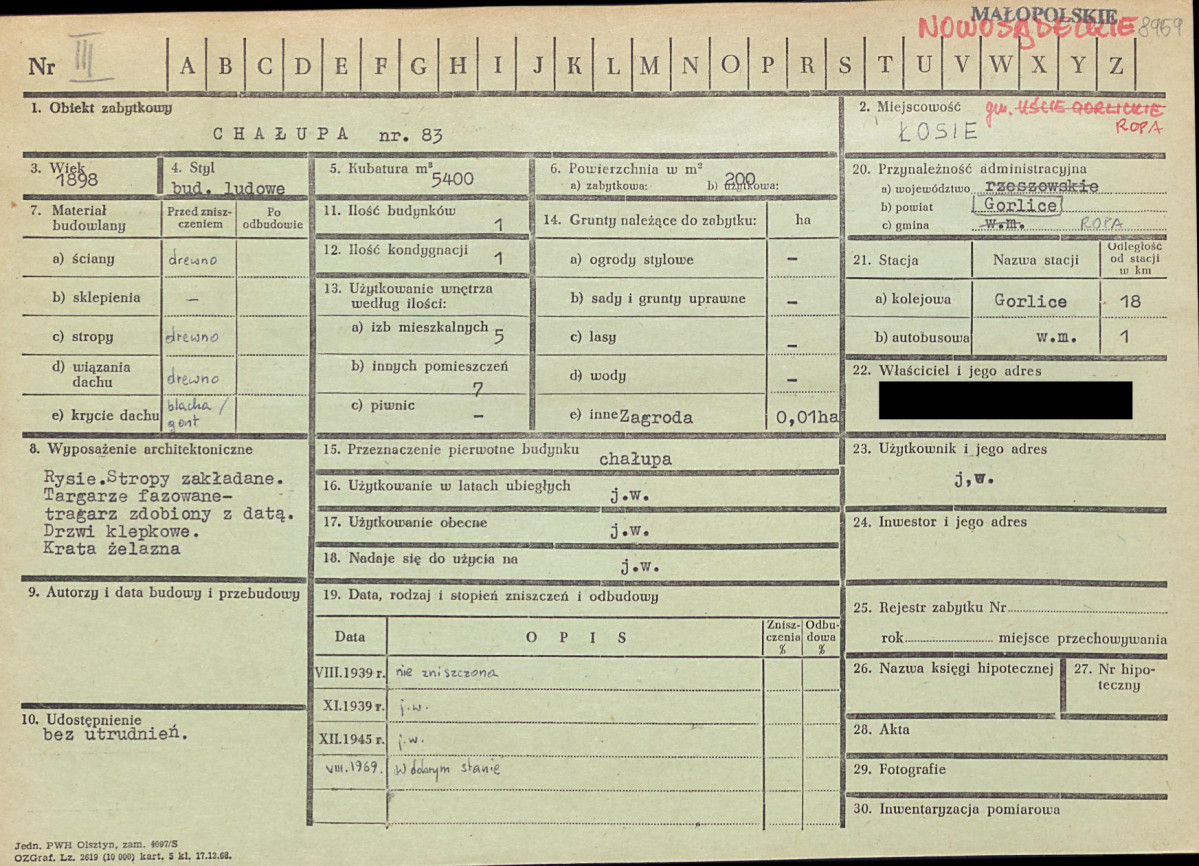 MAŁOPOLSKIE
NOWOSĄDECKIE 8959
Nr III A B C D E F G H I J K L M N O P R S T U V W X Y Z
1. Obiekt zabytkowy
CHAŁUPA nr. 83
2. Miejscowość gm. UŚCIE GORLICKIE
ŁOSIE ROPA
3. Wiek
1898
4. Styl
bud. ludowe
5. Kubatura m³
5400
6. Powierzchnia w m²
200
a) zabytkowa: b) użytkowa:
7. Materiał budowlany
Przed zniszczeniem
Po odbudowie
a) ściany drewno
b) sklepienia —
c) stropy drewno
d) wiązania dachu drewno
e) krycie dachu blacha / gont
8. Wyposażenie architektoniczne
Rysie.Stropy zakładane.
Targarze fazowane-
tragarz zdobiony z datą.
Drzwi klepkowe.
Krata żelazna
9. Autorzy i data budowy i przebudowy
10. Udostępnienie
bez utrudnień.
11. Ilość budynków 1
12. Ilość kondygnacji 1
13. Użytkowanie wnętrza
według ilości:
a) izb mieszkalnych 5
b) innych pomieszczeń
7
c) piwnic –
14. Grunty należące do zabytku: ha
a) ogrody stylowe –
b) sady i grunty uprawne –
c) lasy –
d) wody –
e) inne Zagroda 0,01ha
15. Przeznaczenie pierwotne budynku
chałupa
16. Użytkowanie w latach ubiegłych
j.w.
17. Użytkowanie obecne
j.w.
18. Nadaje się do użycia na
j.w.
19. Data, rodzaj i stopień zniszczeń i odbudowy
Data OPIS Zniszczenia % Odbudowa %
VIII.1939 r. nie zniszczona
XI.1939 r. j.w.
XII.1945 r. j.w.
VIII.1969. w dobrym stanie
20. Przynależność administracyjna
a) województwo rzeszowskie
b) powiat Gorlice
c) gmina w.m. ROPA
21. Stacja Nazwa stacji Odległość od stacji w km
a) kolejowa Gorlice 18
b) autobusowa w.m. 1
22. Właściciel i jego adres
23. Użytkownik i jego adres
j,w.
24. Inwestor i jego adres
25. Rejestr zabytku Nr
rok miejsce przechowywania
26. Nazwa księgi hipotecznej
27. Nr hipoteczny
28. Akta
29. Fotografie
30. Inwentaryzacja pomiarowa
Jedn. PWH Olsztyn, zam. 4097/S
OZGraf. Lz. 2619 (10 000) kart. 5 kl. 17.12.68.